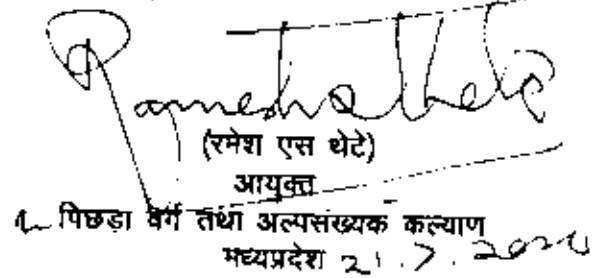 Rameshthete
(रमेश एस थेटे)
आयुक्त
पिछड़ा वर्ग तथा अल्पसंख्यक कल्याण
मध्यप्रदेश 21.7.